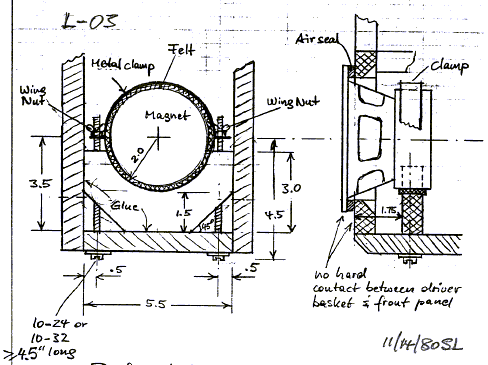 L-03
Air seal
Felt
Metal clamp
Clamp
Wing
Nut
Wing Nut
Magnet
2.0
3.5
3.0
4.5
Glue
1.5
45°
1.75
.5
.5
5.5
no hard
contact between driver
basket & front panel
10-24 or
10-32
≥4.5" long
11/14/80SL